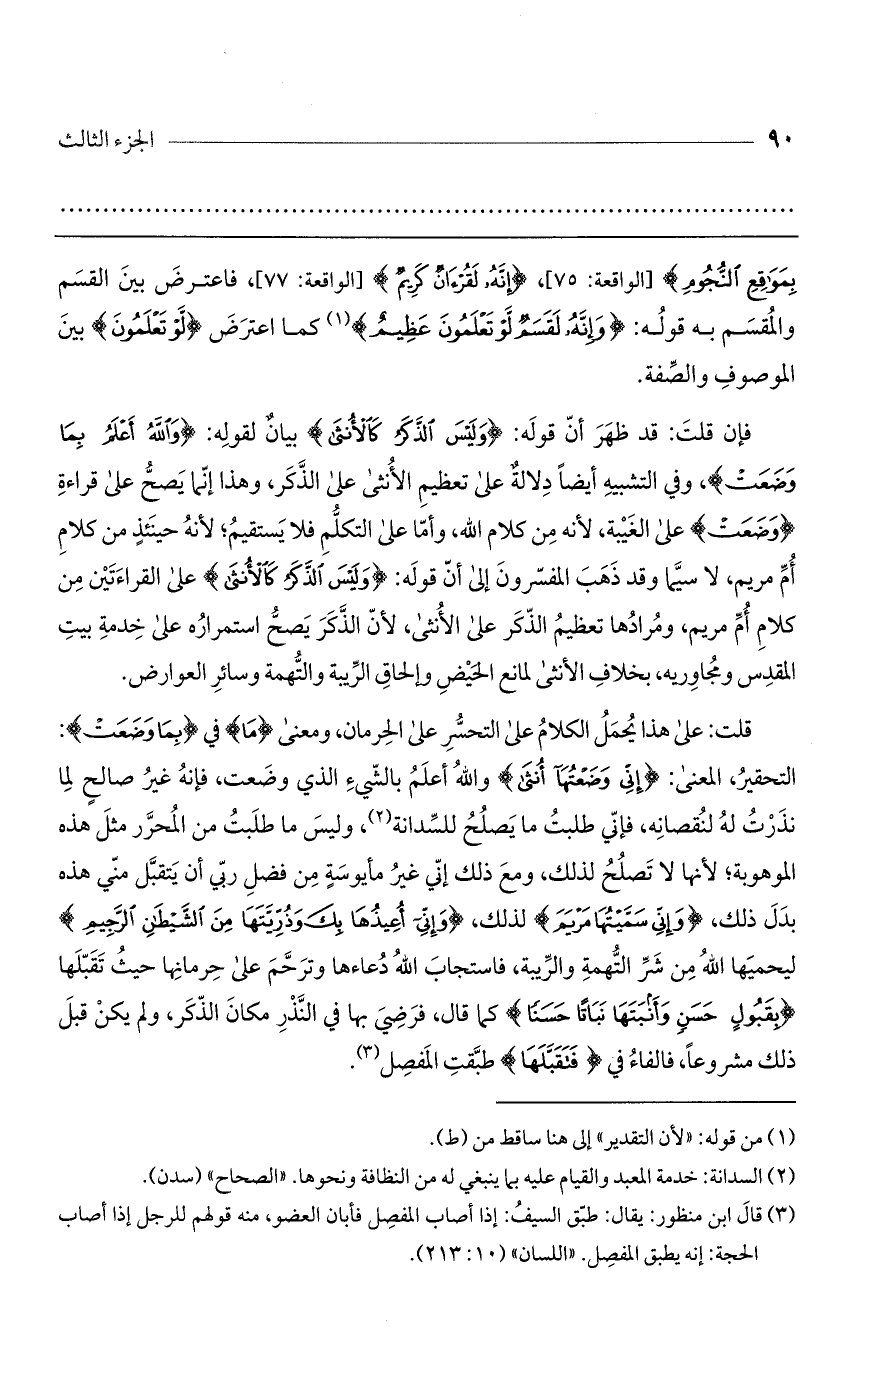 ٩٠ ــــــــــــــــــــ الجزء الثالث
................................................................................
بِمَوَٰقِعِ ٱلنُّجُومِ﴾ [الواقعة: ٧٥]، ﴿إِنَّهُۥ لَقُرْءَانٌ كَرِيمٌ﴾ [الواقعة: ٧٧]، فاعترضَ بينَ القسَم
والمُقسَم به قولُه: ﴿وَإِنَّهُۥ لَقَسَمٌ لَّوْ تَعْلَمُونَ عَظِيمٌ﴾(١) كما اعترَضَ ﴿لَّوْ تَعْلَمُونَ﴾ بينَ
الموصوفِ والصِّفة.
فإن قلتَ: قد ظهَرَ أنّ قولَه: ﴿وَلَيْسَ ٱلذَّكَرُ كَٱلْأُنثَىٰ﴾ بيانٌ لقولِه: ﴿وَٱللَّهُ أَعْلَمُ بِمَا
وَضَعَتْ﴾، وفي التشبيهِ أيضاً دِلالةٌ علىٰ تعظيمِ الأُنثىٰ علىٰ الذَّكَر، وهذا إنّما يَصحُّ علىٰ قراءةِ
﴿وَضَعَتْ﴾ علىٰ الغَيْبة، لأنه مِن كلام الله، وأمّا علىٰ التكلُّمِ فلا يَستقيمُ؛ لأنهُ حينَئذٍ من كلامِ
أُمِّ مريم، لا سيَّما وقد ذَهَبَ المفسّرونَ إلىٰ أنّ قولَه: ﴿وَلَيْسَ ٱلذَّكَرُ كَٱلْأُنثَىٰ﴾ علىٰ القراءَتَيْن مِن
كلامِ أُمِّ مريم، ومُرادُها تعظيمُ الذّكَر علىٰ الأُنثىٰ، لأنّ الذَّكَرَ يَصحُّ استمرارُه علىٰ خِدمةِ بيتِ
المقدِس ومُجاوِريه، بخلافِ الأنثىٰ لمانع الحَيْضِ وإلحاقِ الرِّيبة والتُّهمة وسائرِ العوارض.
قلت: علىٰ هذا يُحمَلُ الكلامُ علىٰ التحسُّرِ علىٰ الحِرمان، ومعنىٰ ﴿مَا﴾ في ﴿بِمَا وَضَعَتْ﴾:
التحقيرُ، المعنىٰ: ﴿إِنِّي وَضَعْتُهَآ أُنثَىٰ﴾ واللهُ أعلَمُ بالشّيءِ الذي وضَعت، فإنهُ غيرُ صالحٍ لِما
نذَرْتُ لهُ لنُقصانِه، فإنّي طلبتُ ما يَصلُحُ للسِّدانة(٢)، وليسَ ما طلَبتُ من المُحرَّر مثلَ هذه
الموهوبة؛ لأنها لا تَصلُحُ لذلك، ومعَ ذلك إنّي غيرُ مأيوسَةٍ مِن فضلِ ربّي أن يَتقبَّل منّي هذه
بدَلَ ذلك، ﴿وَإِنِّي سَمَّيْتُهَا مَرْيَمَ﴾ لذلك، ﴿وَإِنِّيٓ أُعِيذُهَا بِكَ وَذُرِّيَّتَهَا مِنَ ٱلشَّيْطَٰنِ ٱلرَّجِيمِ﴾
ليحميَها اللهُ مِن شَرِّ التُّهمةِ والرِّيبة، فاستجابَ اللهُ دُعاءها وترَحَّمَ علىٰ حِرمانِها حيثُ تَقَبّلَها
﴿بِقَبُولٍ حَسَنٍ وَأَنۢبَتَهَا نَبَاتًا حَسَنًا﴾ كما قال، فرَضِيَ بها في النَّذْرِ مكانَ الذّكَر، ولم يكنْ قبلَ
ذلك مشروعاً، فالفاءُ في ﴿فَتَقَبَّلَهَا﴾ طبَّقتِ المَفصِل(٣).
(١) من قوله: «لأن التقدير» إلى هنا ساقط من (ط).
(٢) السدانة: خدمة المعبد والقيام عليه بما ينبغي له من النظافة ونحوها. «الصحاح» (سدن).
(٣) قالَ ابن منظور: يقال: طبّق السيفُ: إذا أصاب المفصِل فأبان العضو، منه قولهم للرجل إذا أصاب
الحجة: إنه يطبق المفصِل. «اللسان» (١٠: ٢١٣).